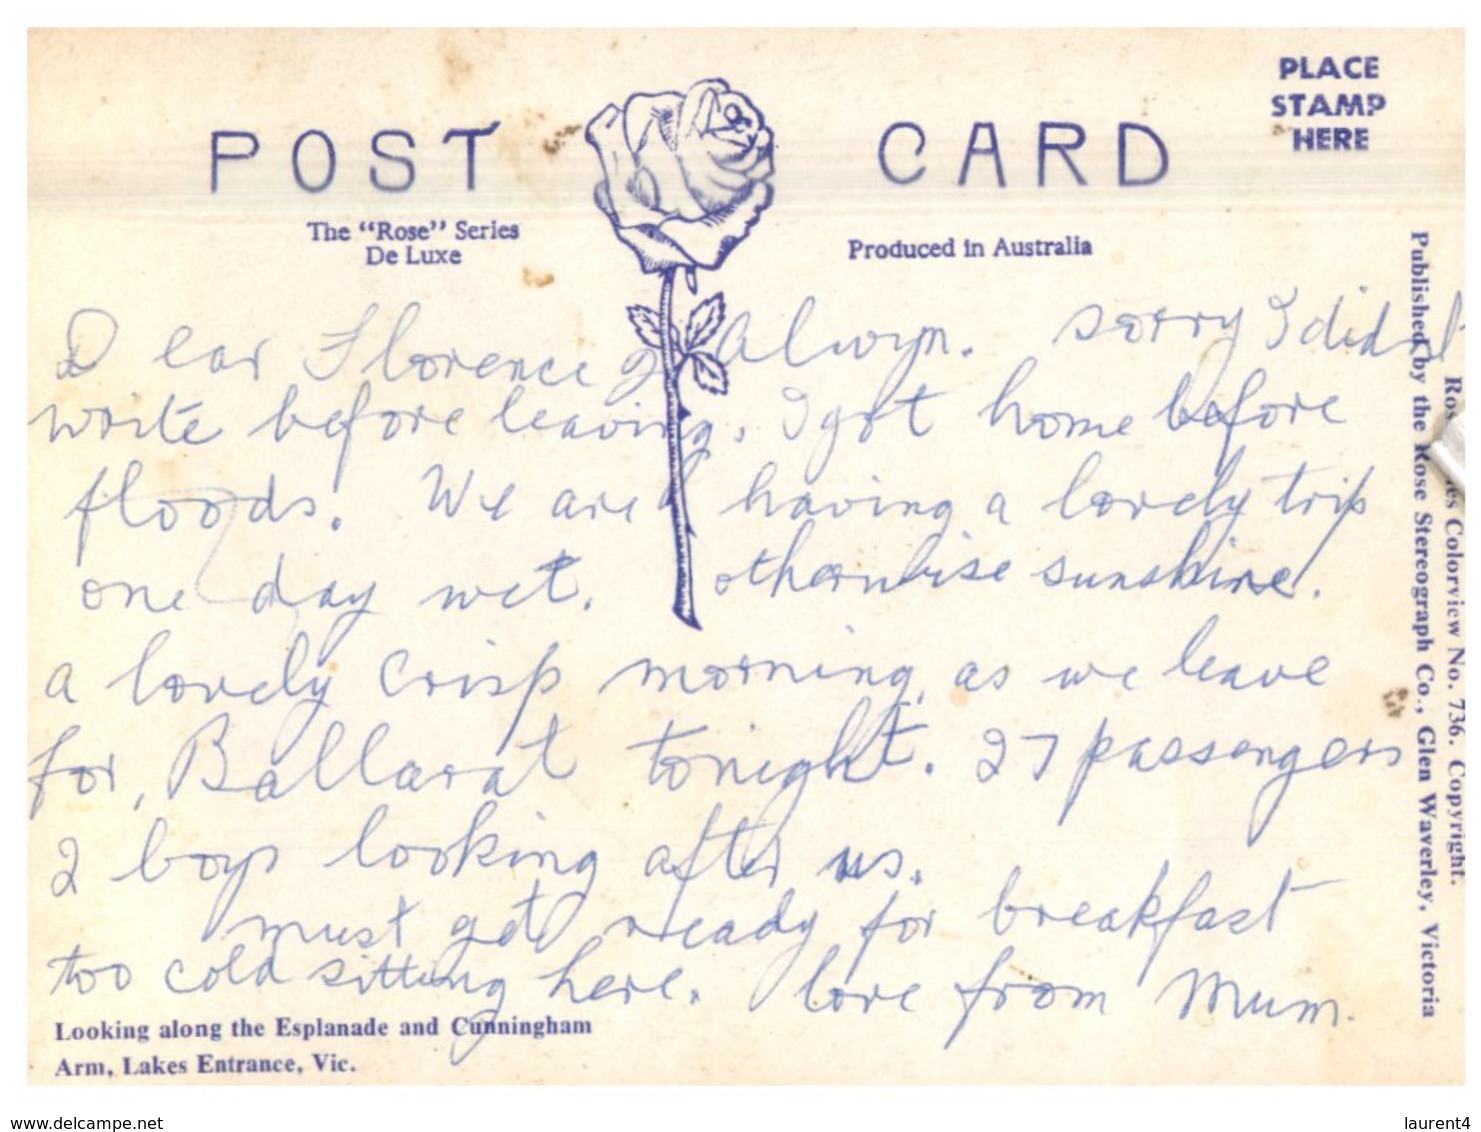 PLACE
STAMP
HERE
POST CARD
The "Rose" Series
De Luxe
Produced in Australia
Dear Florence & Alwyn. sorry I did
write before leaving. I got home before
floods. We are having a lovely trip
one day wet. otherwise sunshine.
a lovely crisp morning, as we leave
for, Ballarat tonight. 27 passengers
2 boys looking after us.
must get ready for breakfast
too cold sitting here. love from Mum.
Looking along the Esplanade and Cunningham
Arm, Lakes Entrance, Vic.
Colorview No. 736. Copyright.
Published by the Rose Stereograph Co., Glen Waverley, Victoria
delcampe.net
laurent4